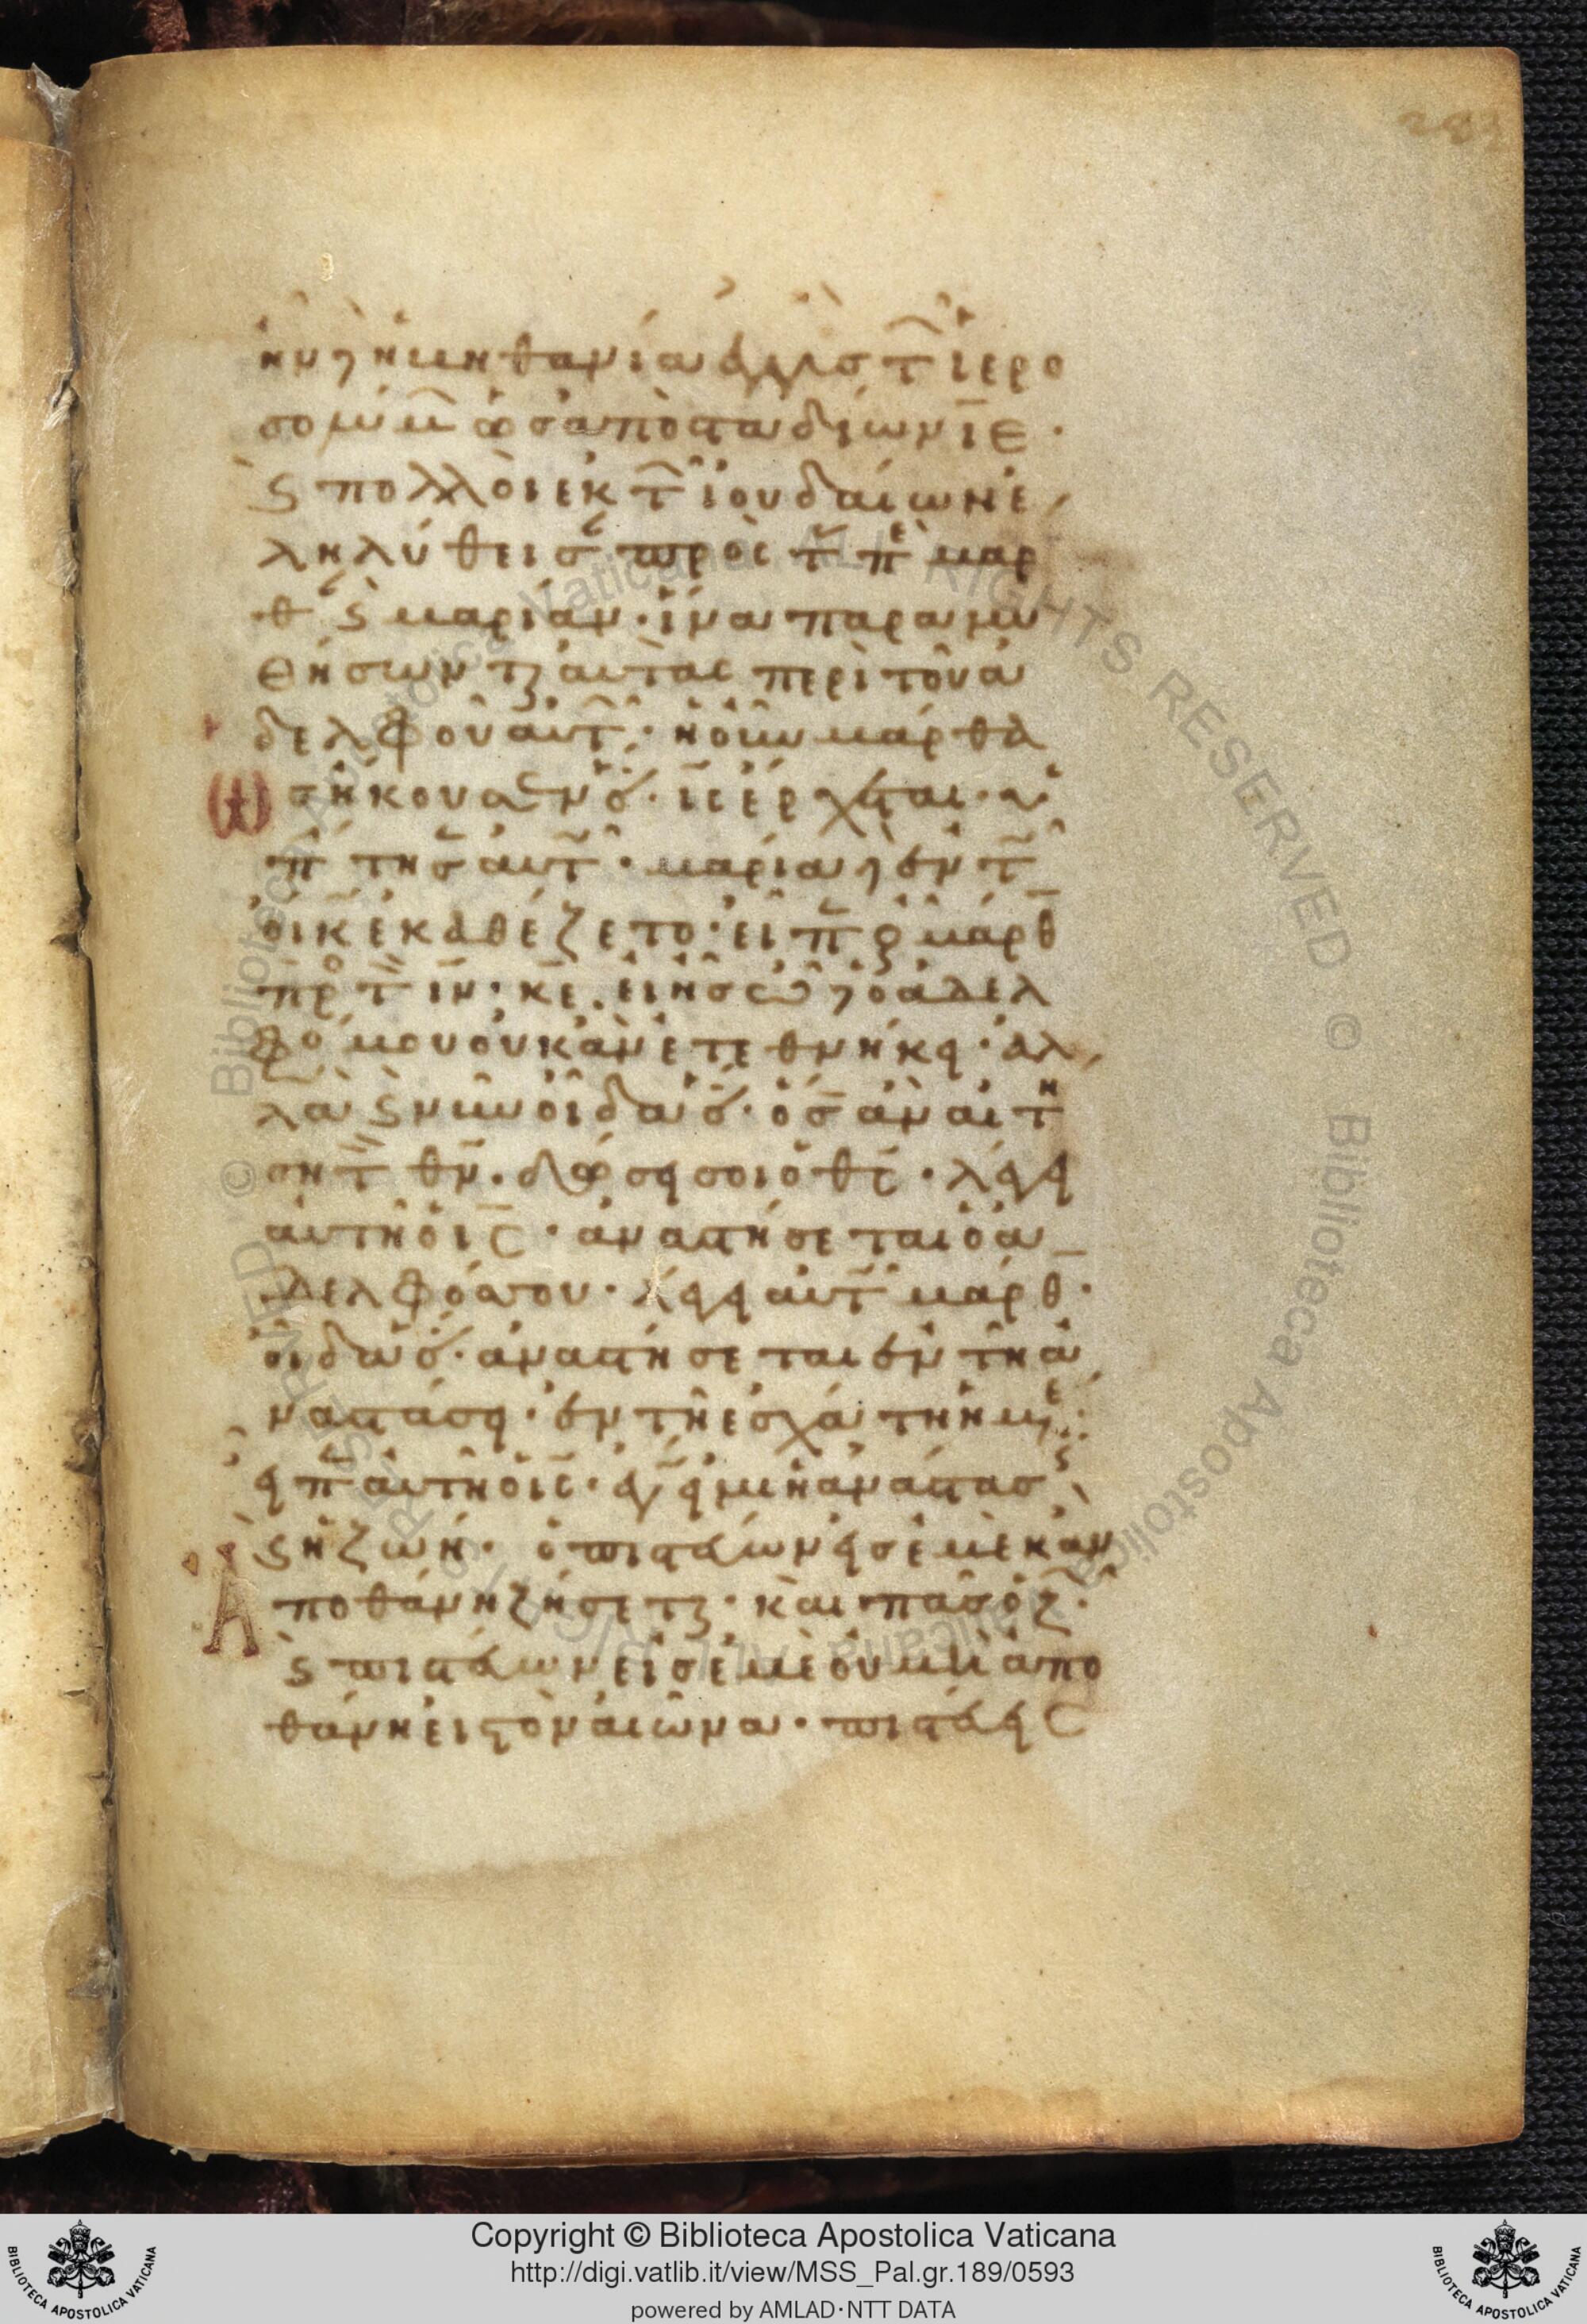 ἦν δὲ ἡ βηθανία ἐγγὺς τῶν ἱερο
σολύμων ὡς ἀπὸ σταδίων ιε·
καὶ πολλοὶ ἐκ τῶν ἰουδαίων ἐ
ληλύθεισαν πρὸς τὰς περὶ μαρ
θαν καὶ μαριάμ· ἵνα παραμυ
θήσωνται αὐτὰς περὶ τοῦ ἀ
δελφοῦ αὐτῶν· ἡ οὖν μάρθα
ὡς ἤκουσεν ὅτι ις ἔρχεται· ὑ
πήντησεν αὐτῷ· μαρία δὲ ἐν τῷ
οἴκῳ ἐκαθέζετο· εἶπεν οὖν μάρθα
πρὸς τὸν ιν· κε εἰ ἦς ὧδε ὁ ἀδελ
φός μου οὐκ ἂν ἐτεθνήκει· ἀλ
λὰ καὶ νῦν οἶδα ὅτι ὅσα ἂν αἰτή
σῃ τὸν θν· δώσει σοι ὁ θς· λέγει
αὐτῇ ὁ ις· ἀναστήσεται ὁ ἀ
δελφός σου· λέγει αὐτῷ μάρθα·
οἶδα ὅτι ἀναστήσεται ἐν τῇ ἀ
ναστάσει· ἐν τῇ ἐσχάτῃ ἡμέρᾳ
εἶπεν αὐτῇ ὁ ις· ἐγώ εἰμι ἡ ἀνάστασις
καὶ ἡ ζωή· ὁ πιστεύων εἰς ἐμὲ κἂν
ἀποθάνῃ ζήσεται· καὶ πᾶς ὁ ζῶν
καὶ πιστεύων εἰς ἐμὲ οὐ μὴ ἀπο
θάνῃ εἰς τὸν αἰῶνα· πιστεύεις
Copyright © Biblioteca Apostolica Vaticana
http://digi.vatlib.it/view/MSS_Pal.gr.189/0593
powered by AMLAD·NTT DATA
BIBLIOTECA APOSTOLICA VATICANA
BIBLIOTECA APOSTOLICA VATICANA